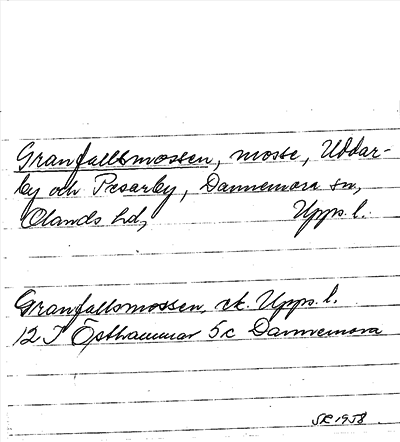 Granfallsmossen, mosse, Uddar-
by och Presarby, Dannemora sn,
Olands hd, Upps. l.
Granfallsmossen, ek. Upps. l.
12 I Östhammar 5c Dannemora
SK 1958